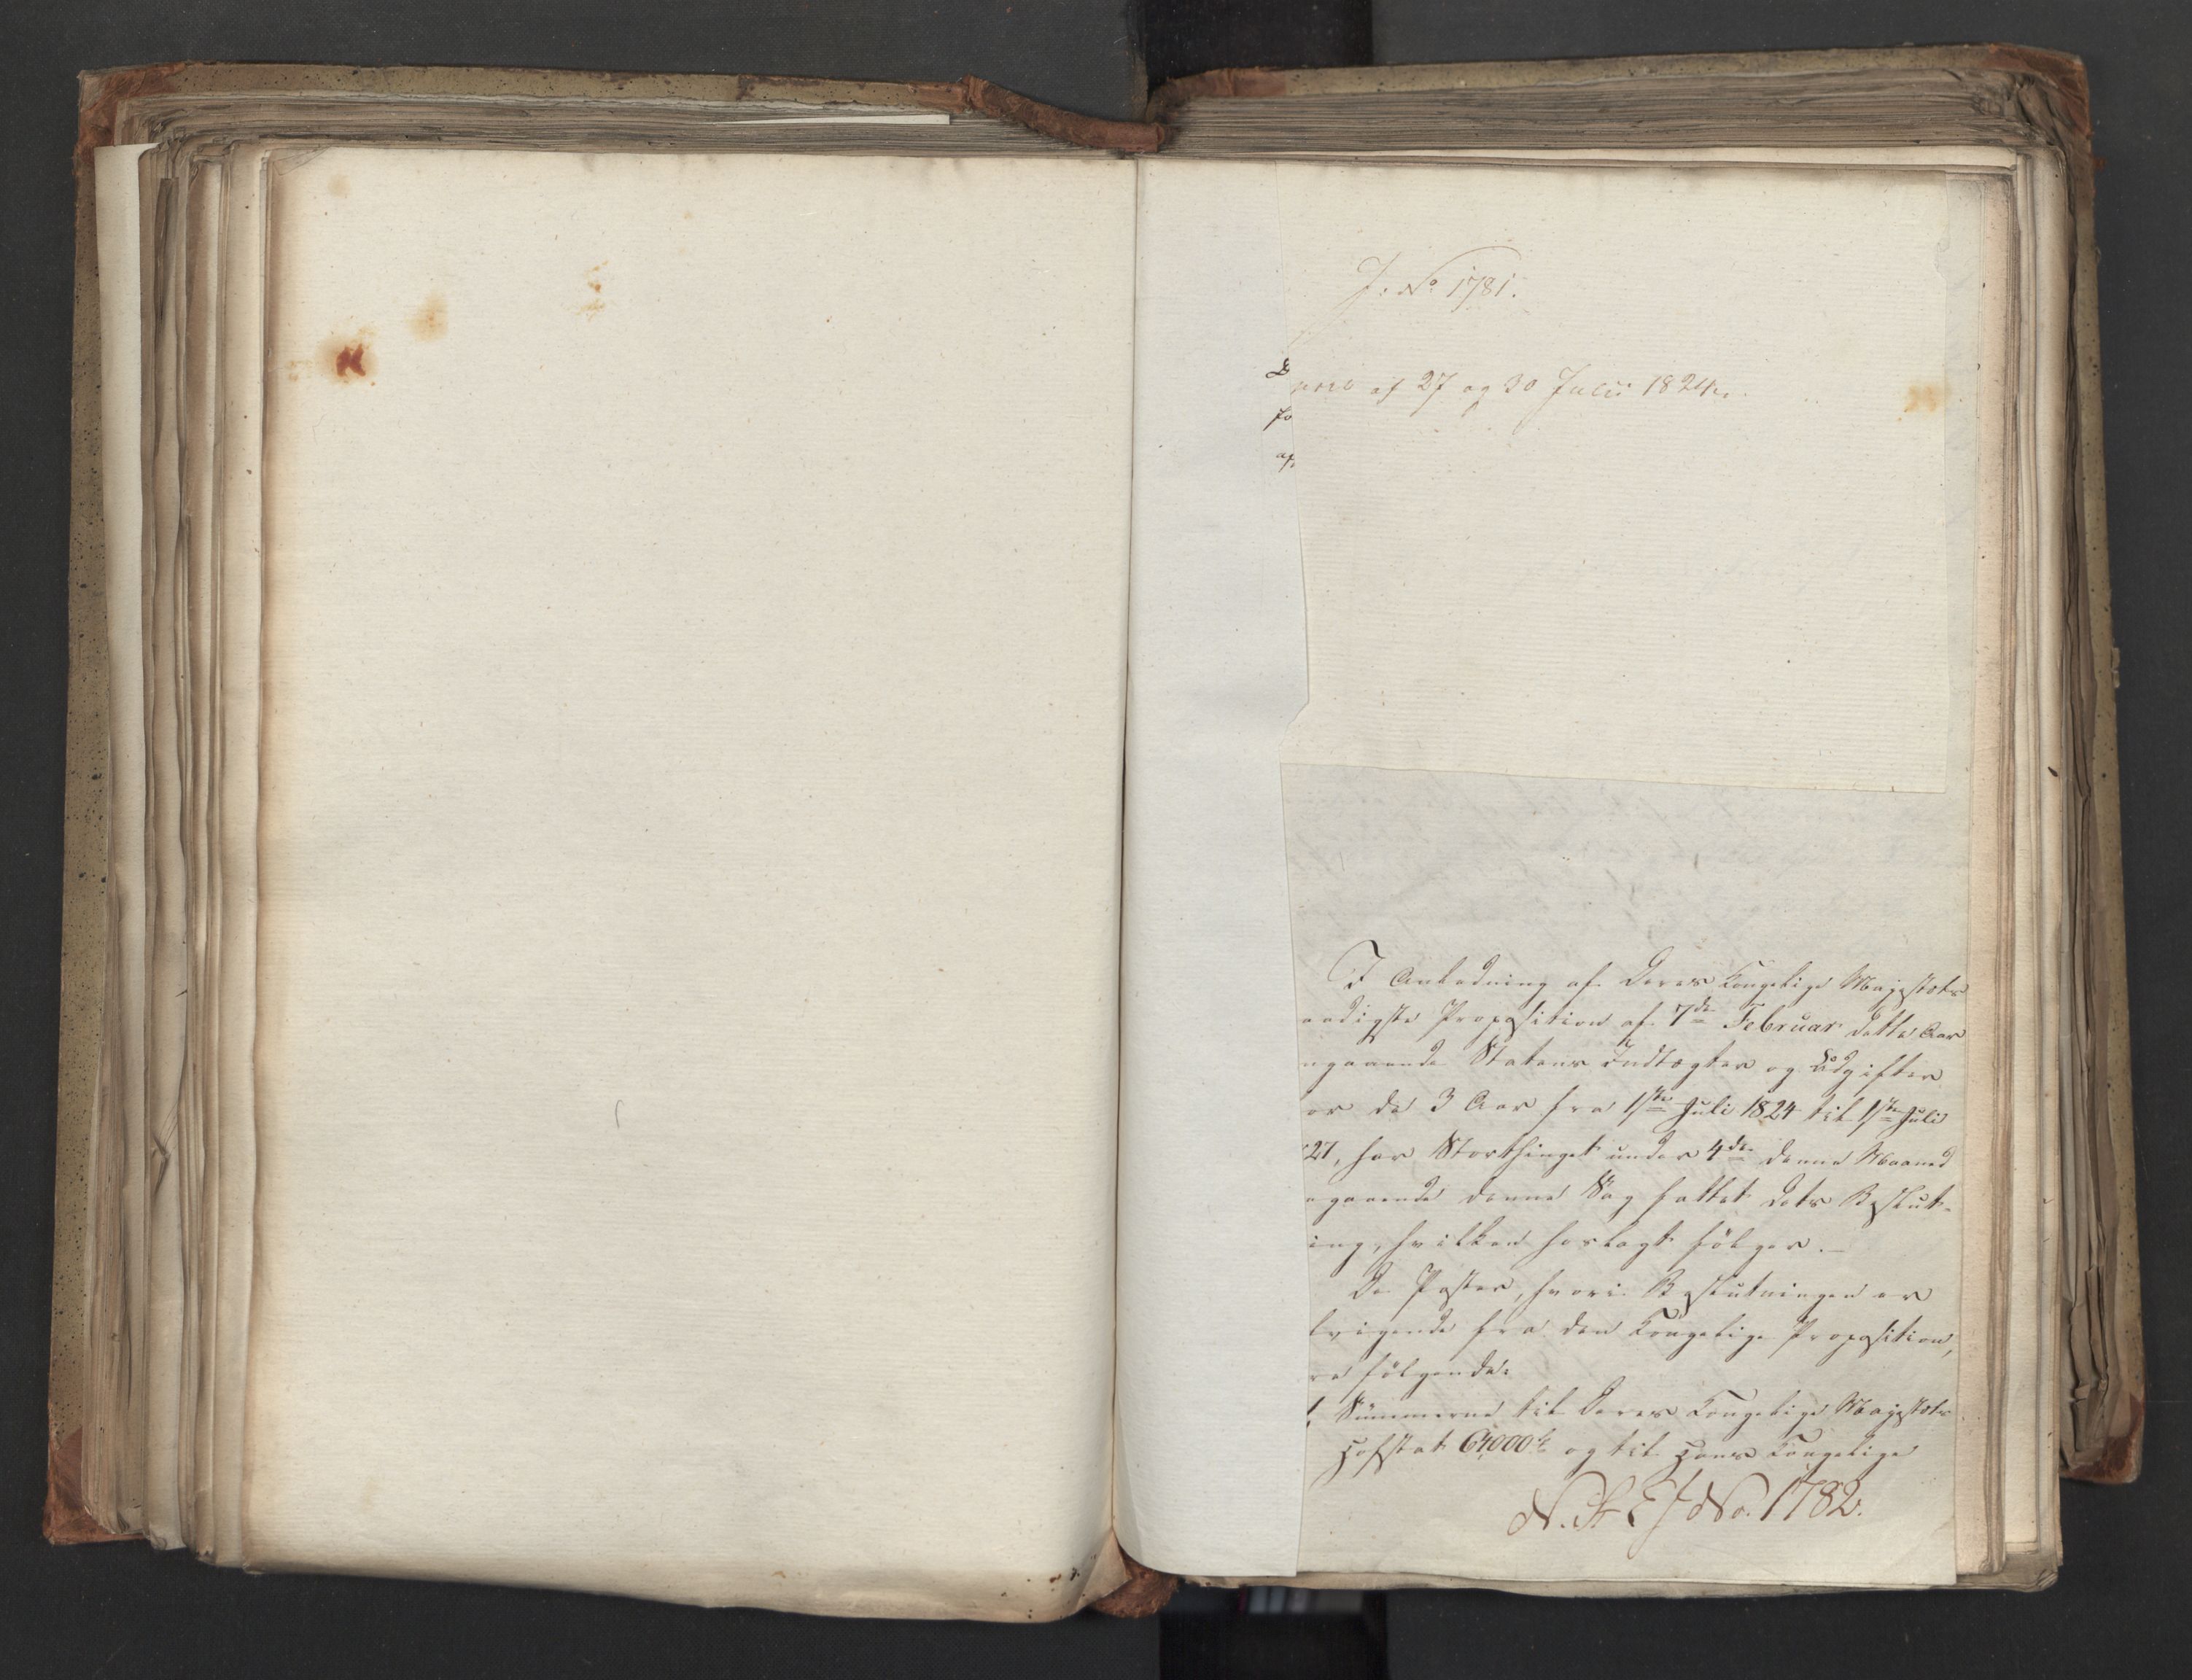 J: No 1781.
af 27 og 30 Julii 1824.
fo
af
I Anledning af Deres Kongelige Majestæts
aadigste Proposition af 7de Februar dette Aar
ngaaende Statens Indtægter og Udgifter
or de 3 Aar fra 1ste Juli 1824 til 1ste Juli
27, har Storthinget under 4de denne Maaned
ngaaende denne Sag fattet dets Beslut-
ing, hvilken herlagt følger. –
De Poster, hvori Beslutningen er
fvigende fra den Kongelige Proposition,
re følgende:
Summerne til Deres Kongelige Majestæts
Hofstat 64000 og til Hans Kongelige
N. St. E J No. 1782.